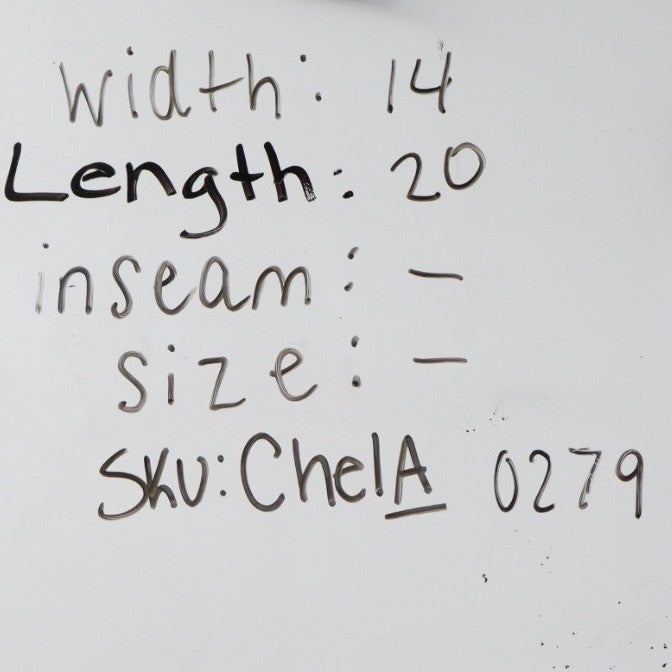 width: 14
Length: 20
inseam: -
size: -
SKU: ChelA 0279